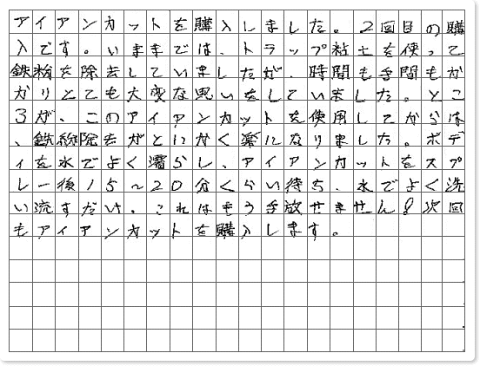 アイアンカットを購入しました。2回目の購
入です。いままでは、トラップ粘土を使って
鉄粉を除去していましたが、時間も手間もか
かりとても大変な思いをしていました。とこ
ろが、このアイアンカットを使用してからは
、鉄粉除去がとにかく楽になりました。ボデ
ィを水でよく濡らし、アイアンカットをスプ
レー後15～20分くらい待ち、水でよく洗
い流すだけ。これはもう手放せません!次回
もアイアンカットを購入します。